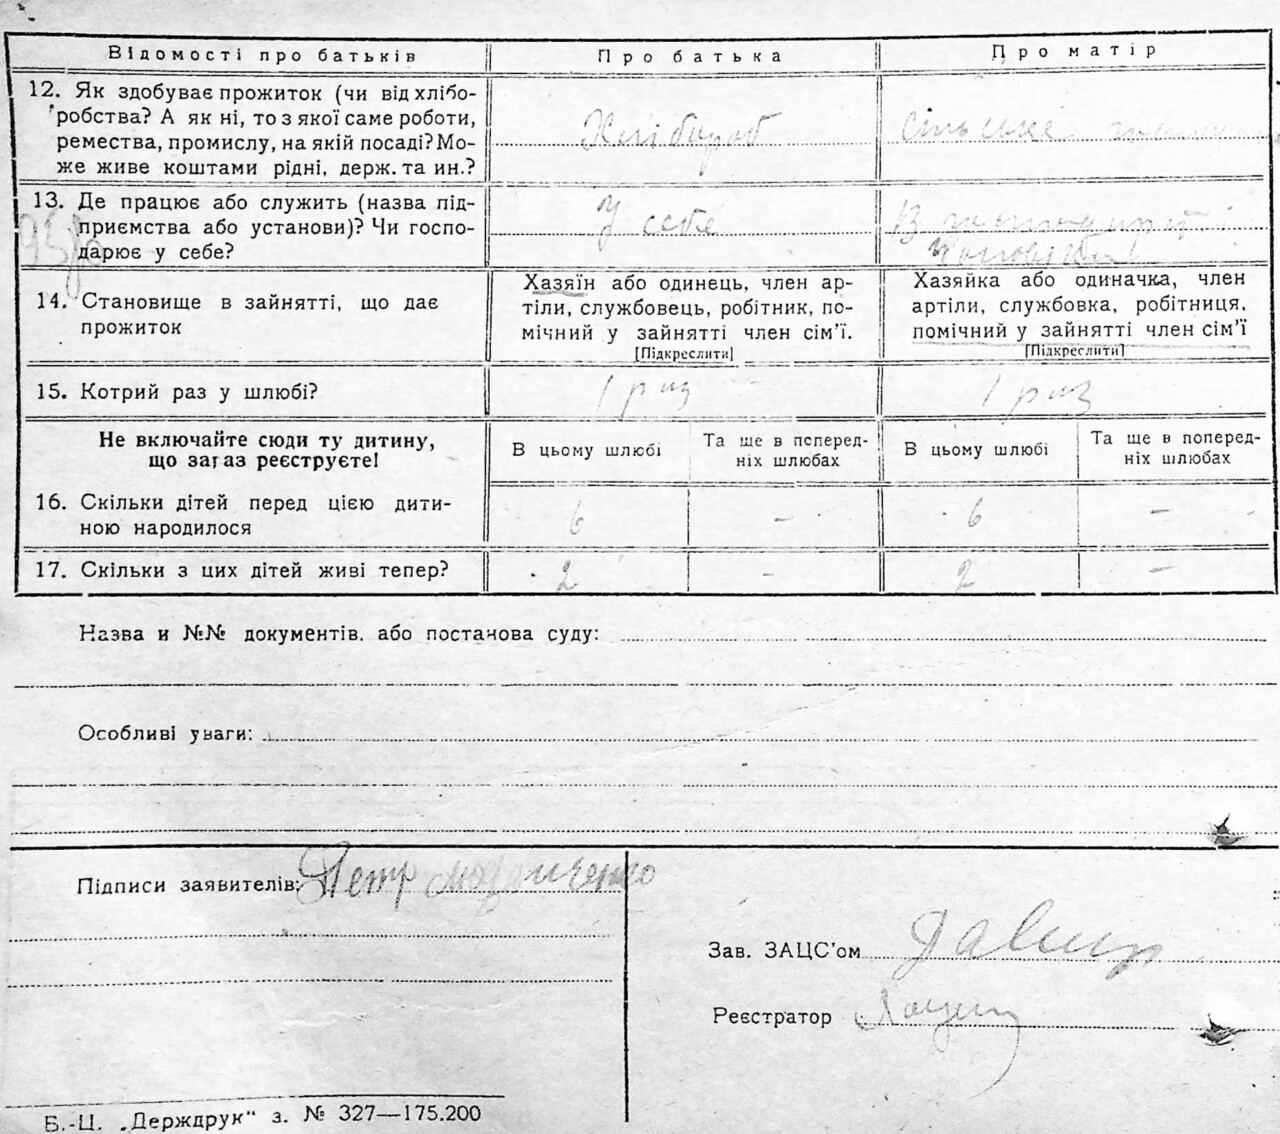 Відомості про батьків
Про батька
Про матір
12. Як здобуває прожиток (чи від хлібо-
робства? А як ні, то з якої саме роботи,
ремества, промислу, на якій посаді? Мо-
же живе коштами рідні, держ. та ин.?
Хлібороб
сільське
13. Де працює або служить (назва під-
приємства або установи)? Чи госпо-
дарює у себе?
У себе
В
14. Становище в зайнятті, що дає
прожиток
Хазяїн або одинець, член ар-
тіли, службовець, робітник, по-
мічний у зайнятті член сім'ї.
[Підкреслити]
Хазяйка або одиначка, член
артіли, службовка, робітниця,
помічний у зайнятті член сім'ї
[Підкреслити]
15. Котрий раз у шлюбі?
1 раз
1 раз
Не включайте сюди ту дитину,
що зараз реєструєте!
В цьому шлюбі
Та ще в поперед-
ніх шлюбах
В цьому шлюбі
Та ще в поперед-
ніх шлюбах
16. Скільки дітей перед цією дити-
ною народилося
6
–
6
–
17. Скільки з цих дітей живі тепер?
2
–
2
–
Назва и №№ документів, або постанова суду:
Особливі уваги:
Підписи заявителів: Петр
Зав. ЗАЦС'ом
Реєстратор
Б.-Ц. „Держдрук" з. № 327—175.200